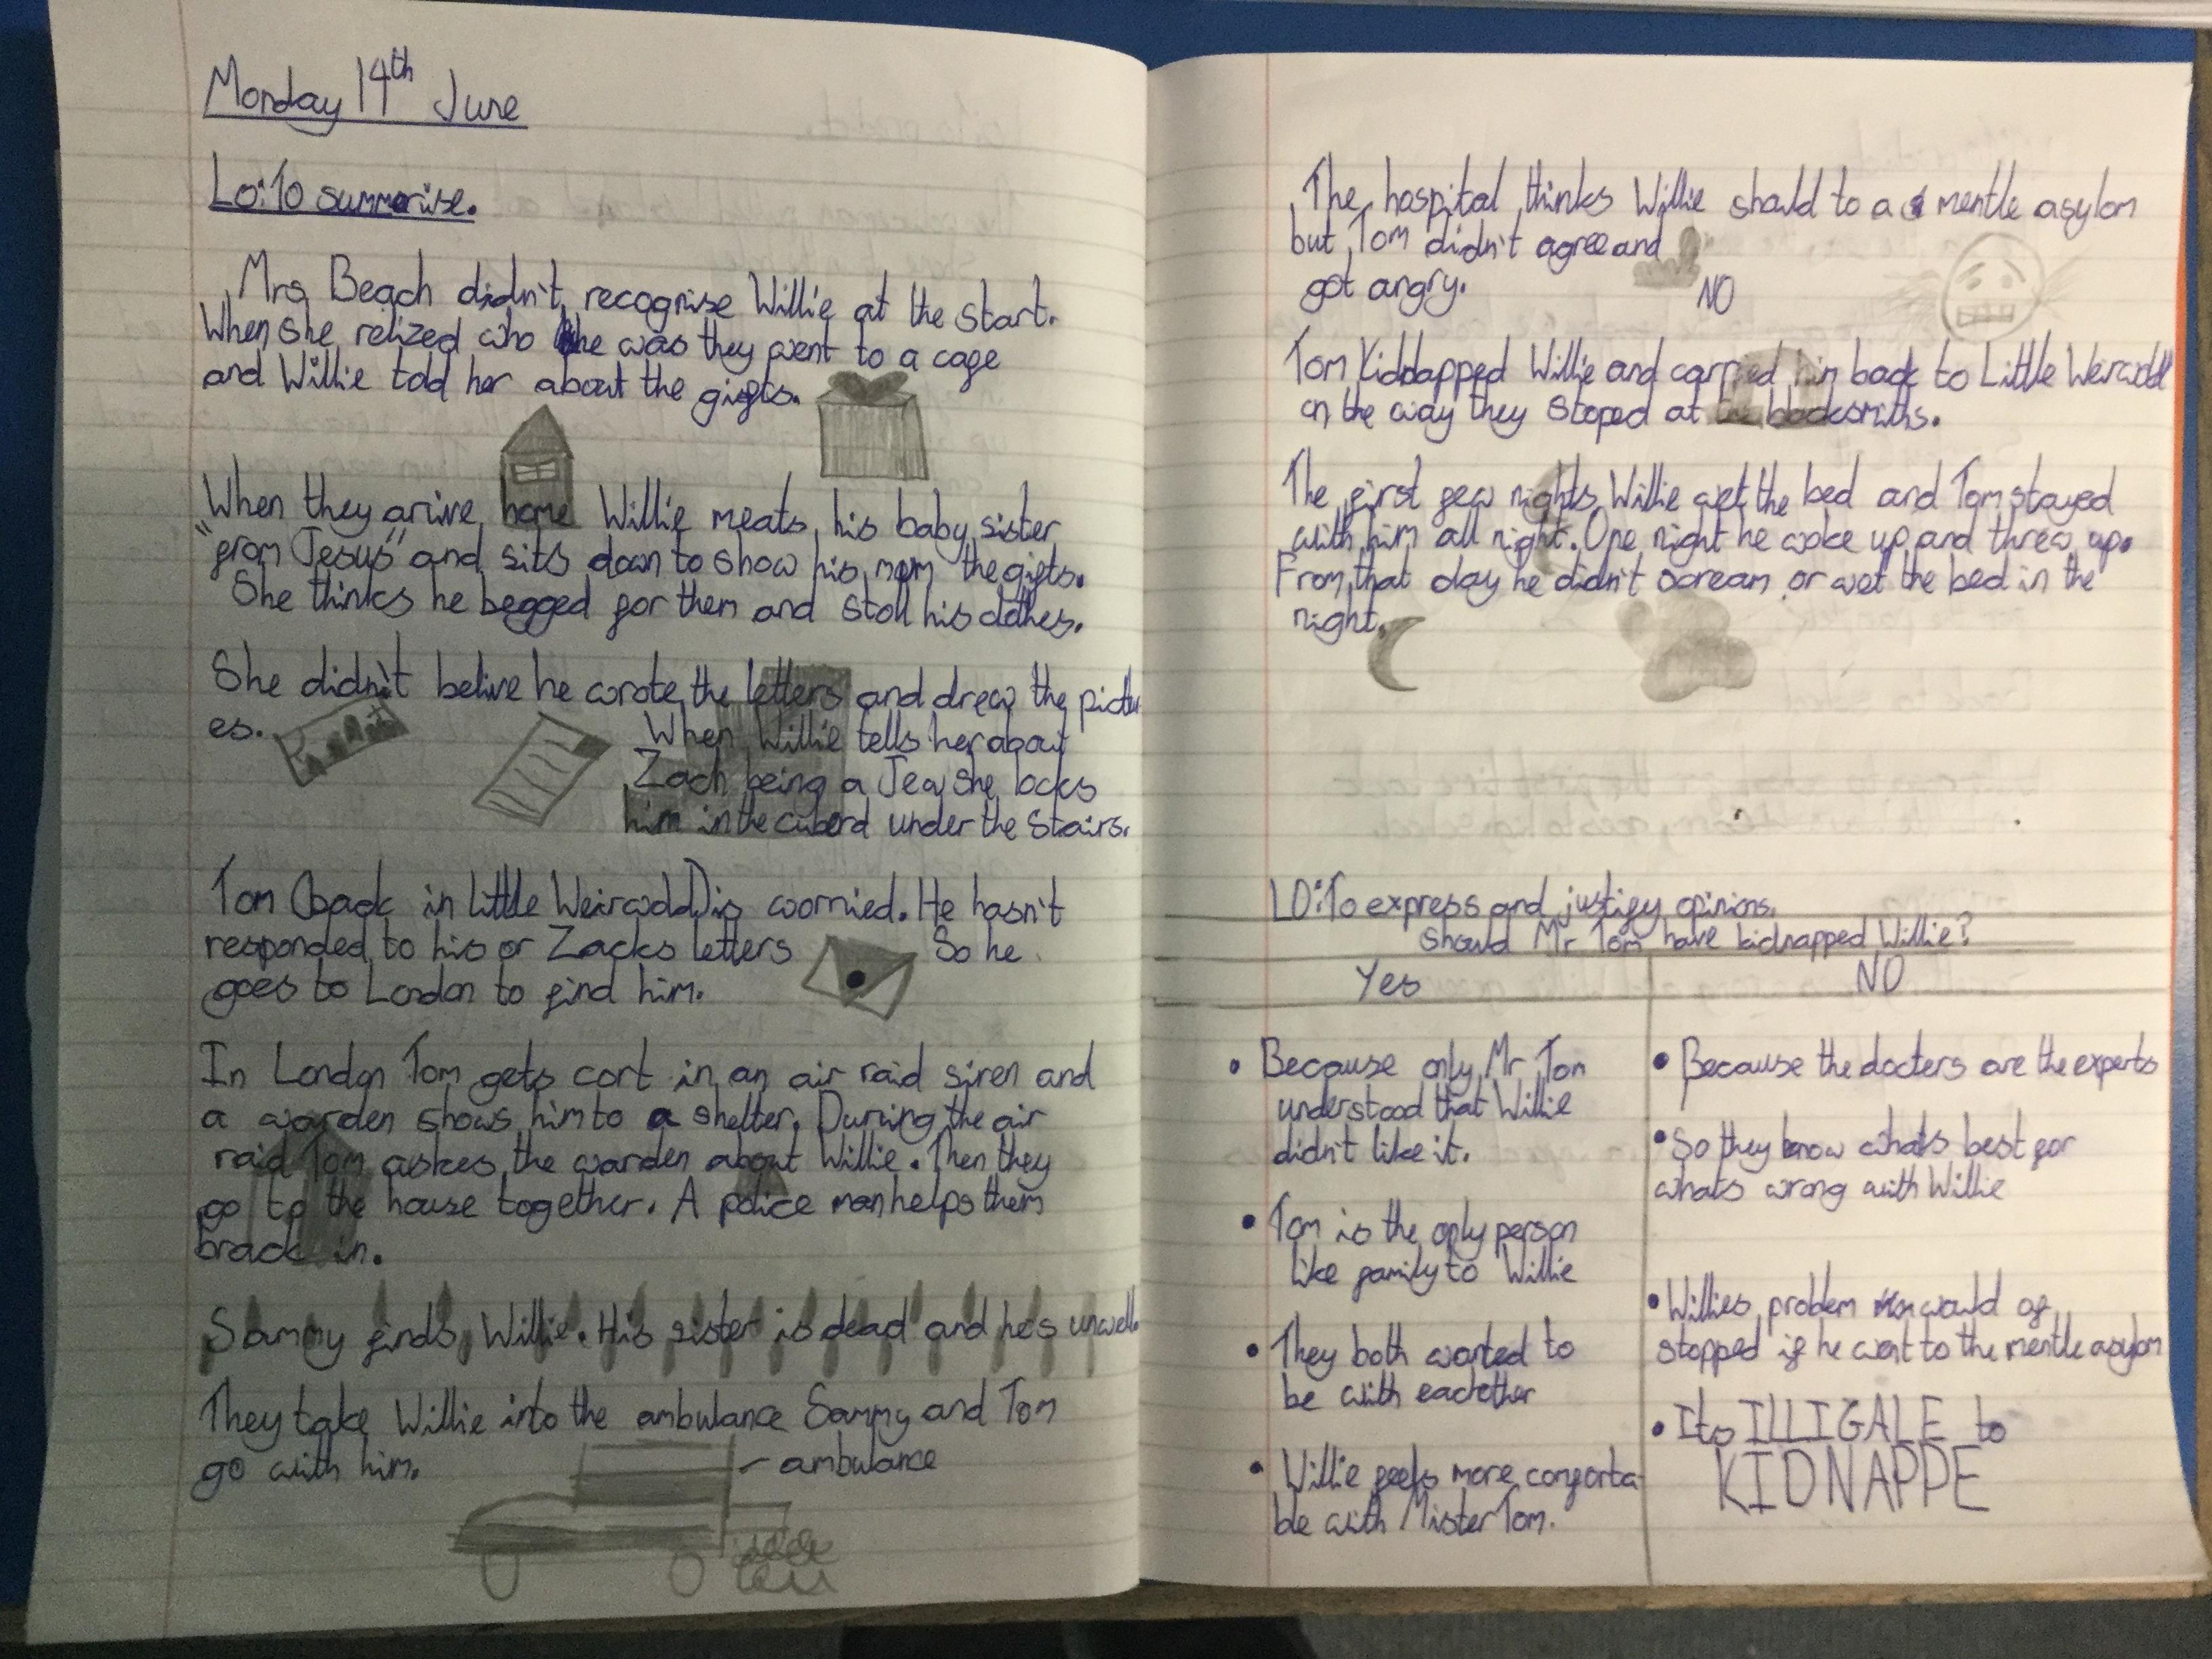 Monday 14th June
Lo: To summerise.
Mrs Beach didn't recognise Willie at the start.
When she relized who he was they went to a cafe
and Willie told her about the gifts.
When they arrive home Willie meats his baby sister
"from Jesus" and sits down to show his mom the gifts.
She thinks he begged for them and stoll his clothes.
She didn't belive he wrote the letters and drew the pictur
es.
When Willie tells her about
Zach being a Jew she locks
him in the cuberd under the stairs.
Tom (back in little Weirwold) is worried. He hasn't
responded to his or Zacks letters So he
goes to London to find him.
In London Tom gets cort in an air raid siren and
a warden shows him to a shelter. During the air
raid Tom askes the warden about Willie. Then they
go to the house together. A police man helps them
brack in.
Sammy finds Willie. His sister is dead and he's unwell.
They take Willie into the ambulance Sammy and Tom
go with him.
- ambulance
The hospital thinks Willie should to a mentle asylom
but Tom didn't agree and
got angry.
NO
Tom Kidnapped Willie and carried him back to Little Weirwold
on the way they stoped at the blacksmiths.
The first few nights Willie wet the bed and Tom stayed
with him all night. One night he woke up and threw up.
From that day he didn't scream or wet the bed in the
night.
LO: To express and justify opinions.
Should Mr Tom have kidnapped Willie?
Yes
NO
• Because only Mr Tom
understood that Willie
didn't like it.
• Tom is the only person
like family to Willie
• They both wanted to
be with eachother
• Willie feels more comforta-
ble with Mister Tom.
• Because the docters are the experts
• So they know whats best for
whats wrong with Willie
• Willies problem would of
stopped if he want to the mentle asylom
• Its ILLIGALE to
KIDNAPPE